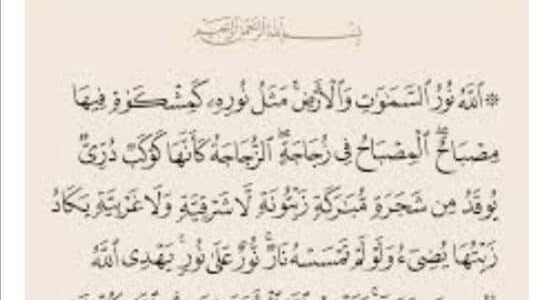 بسم الله الرحمن الرحيم
* ٱللَّهُ نُورُ ٱلسَّمَٰوَٰتِ وَٱلْأَرْضِ ۚ مَثَلُ نُورِهِۦ كَمِشْكَوٰةٍ فِيهَا
مِصْبَاحٌ ۖ ٱلْمِصْبَاحُ فِى زُجَاجَةٍ ۖ ٱلزُّجَاجَةُ كَأَنَّهَا كَوْكَبٌ دُرِّىٌّ
يُوقَدُ مِن شَجَرَةٍ مُّبَٰرَكَةٍ زَيْتُونَةٍ لَّا شَرْقِيَّةٍ وَلَا غَرْبِيَّةٍ يَكَادُ
زَيْتُهَا يُضِىٓءُ وَلَوْ لَمْ تَمْسَسْهُ نَارٌ ۚ نُّورٌ عَلَىٰ نُورٍ ۗ يَهْدِى ٱللَّهُ